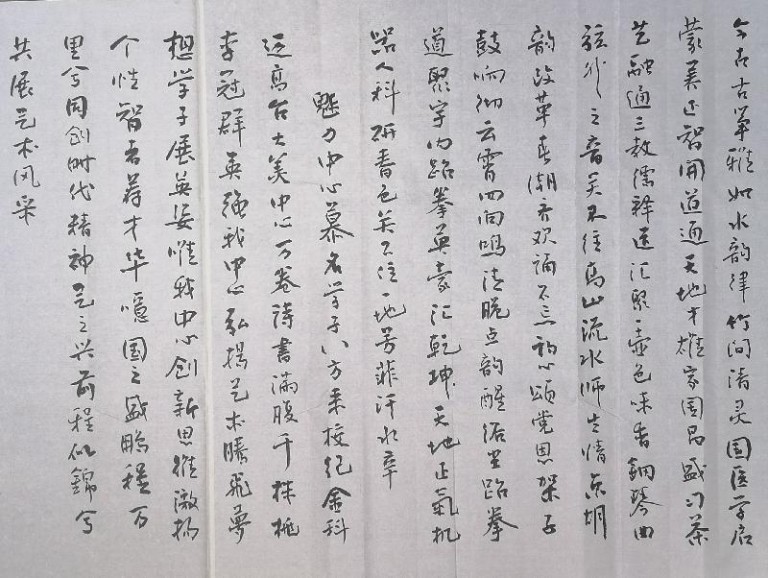 今古古筝雅如水韵律竹间清灵国医学启
蒙美正智开道通天地才雄家国昌盛门茶
艺融通三教儒释道汇聚壶色味香钢琴曲
弦外之音关不住高山流水师生情京胡
韵改革春潮齐欢诵不忘初心颂党恩架子
鼓响彻云霄四向鸣清脆点韵醒俗世跆拳
道聚宇内跆拳英豪汇乾坤天地正氣机
器人科研春色关不住一地芳菲汗水牵
魅力中心慕名学子八方来校纪金科
近高台士美中心万卷诗书满腹千株桃
李冠群英强我中心弘扬艺术腾飞梦
想学子展英姿惟我中心创新思维激扬
个性智者荐才华噫国之盛鹏程万
里兮同创时代精神艺之兴前程似锦兮
共展艺术风采